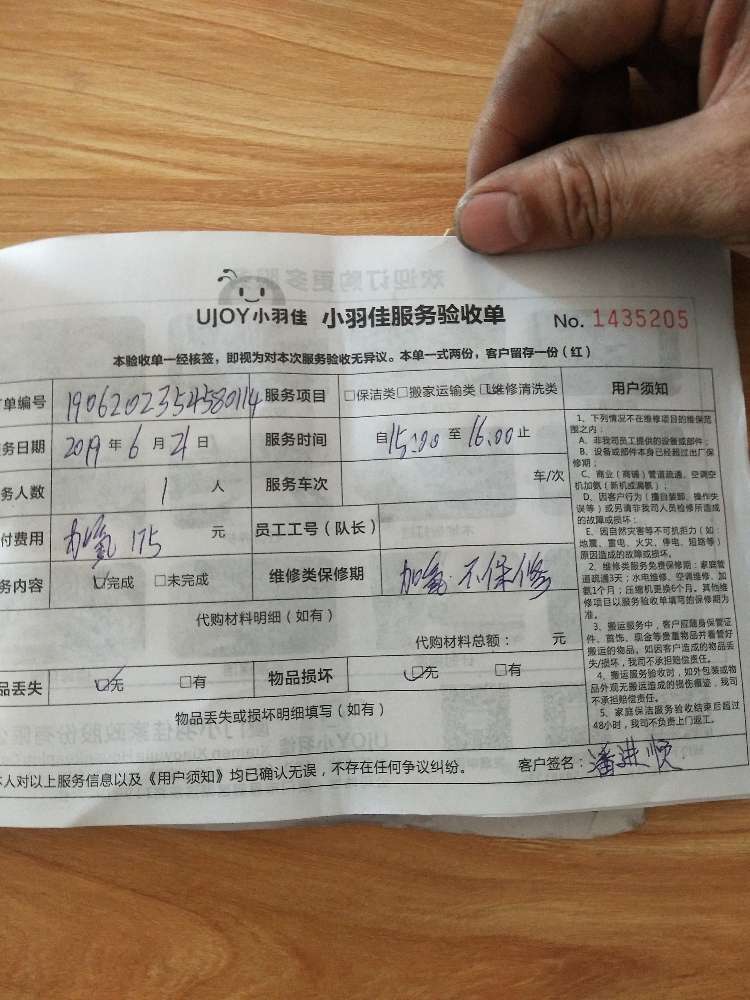 UJOY小羽佳 小羽佳服务验收单 No. 1435205
本验收单一经核签，即视为对本次服务验收无异议。本单一式两份，客户留存一份（红）
单编号 1906202354580114 服务项目 □保洁类□搬家运输类□维修清洗类
务日期 2019年6月21日 服务时间 自15:00至16:00止
务人数 1 人 服务车次 车/次
付费用 加氟 175 元 员工工号（队长）
务内容 □完成 □未完成 维修类保修期 加氟·不保修
代购材料明细（如有）
代购材料总额： 元
品丢失 □无 □有 物品损坏 □无 □有
物品丢失或损坏明细填写（如有）
本人对以上服务信息以及《用户须知》均已确认无误，不存在任何争议纠纷。 客户签名：潘进顺
用户须知
1、下列情况不在维修项目的维保范
围之内：
A、非我司员工提供的设备或部件；
B、设备或部件本身已经超过出厂保
修期；
C、商业（商铺）管道疏通、空调空
机加氨（新机或漏氨）；
D、因客户行为（擅自装卸、操作失
误等）或另请非我司人员检修所造成
的故障或损坏；
E、因自然灾害等不可抗拒力（如：
地震、雷电、火灾、停电、短路等）
原因造成的故障或损坏。
2、维修类服务免费保修期：家庭管
道疏通3天；水电维修、空调维修、加
氨1个月；压缩机更换6个月。其他维
修项目以服务验收单填写的保修期为
准。
3、搬运服务中，客户应随身保管证
件、首饰、现金等贵重物品并看管好
搬运的物品。如因客户造成的物品丢
失/损坏，我司不承担赔偿责任。
4、搬运服务验收时，如外包装或物
品外观无搬运造成的损伤痕迹，我司
不承担赔偿责任。
5、家庭保洁服务验收结束后超过
48小时，我司不负责上门返工。